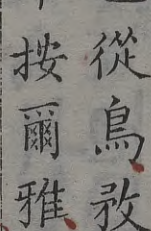 從鳥敄
按爾雅